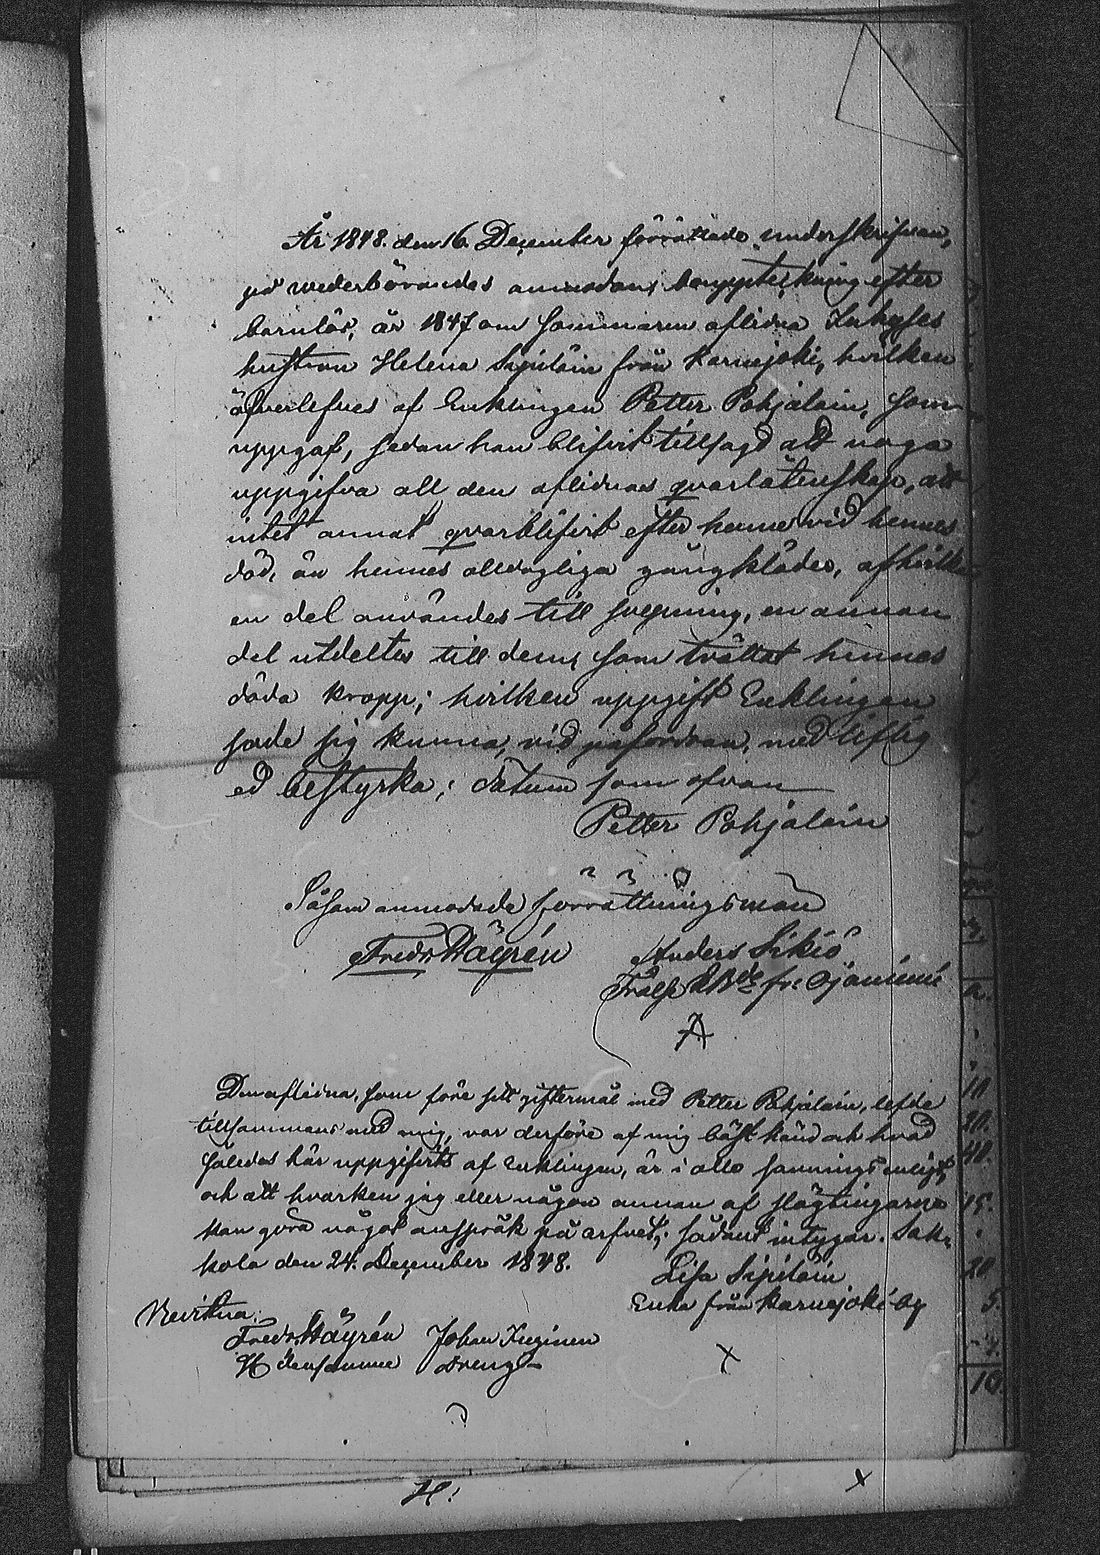 År 1848. den 16. December förrättade underskrifvan,
på wederbörandes anmodan, bouppteckning efter
barnlös, år 1847 om sommaren aflidna Inhyses
hustrun Helena Sipiläin från Karnajoki, hvilken
öfverlefves af Enklingen Petter Pohjalain, som
uppgaf, sedan han blifvit tillsagd att noga
uppgifva all den aflidnas qvarlåtenskap, att
intet annat qvarblifvit efter henne vid hennes
död, än hennes alldagliga gångkläder, af hvilk
en del användes till svepning, en annan
del utdeltes till dem, som tvättat hennes
döda kropp; hvilken uppgift Enklingen
sade sig kunna, vid påfordran, med liflig
ed bestyrka; datum som ofvan
Petter Pohjalain
Såsom anmodade förrättningsmän
Fredr. Häyrén Anders Sikiö
fr:
Den aflidna, som före sitt giftermål med Petter Pohjalain, lefde
tillsammans med mig, var derföre af mig bäst känd och hvad
således här uppgifvits af Enklingen, är i allo sannings enligt,
och att hvarken jag eller någon annan af slägtingarne
kan göra något anspråk på arfvet; sådant intygar. Sak-
kola den 24. December 1848.
Lisa Sipiläin
Enka från Karnajoki by
Bevittna,
Fredr. Häyrén Johan
densamme Dreng
X